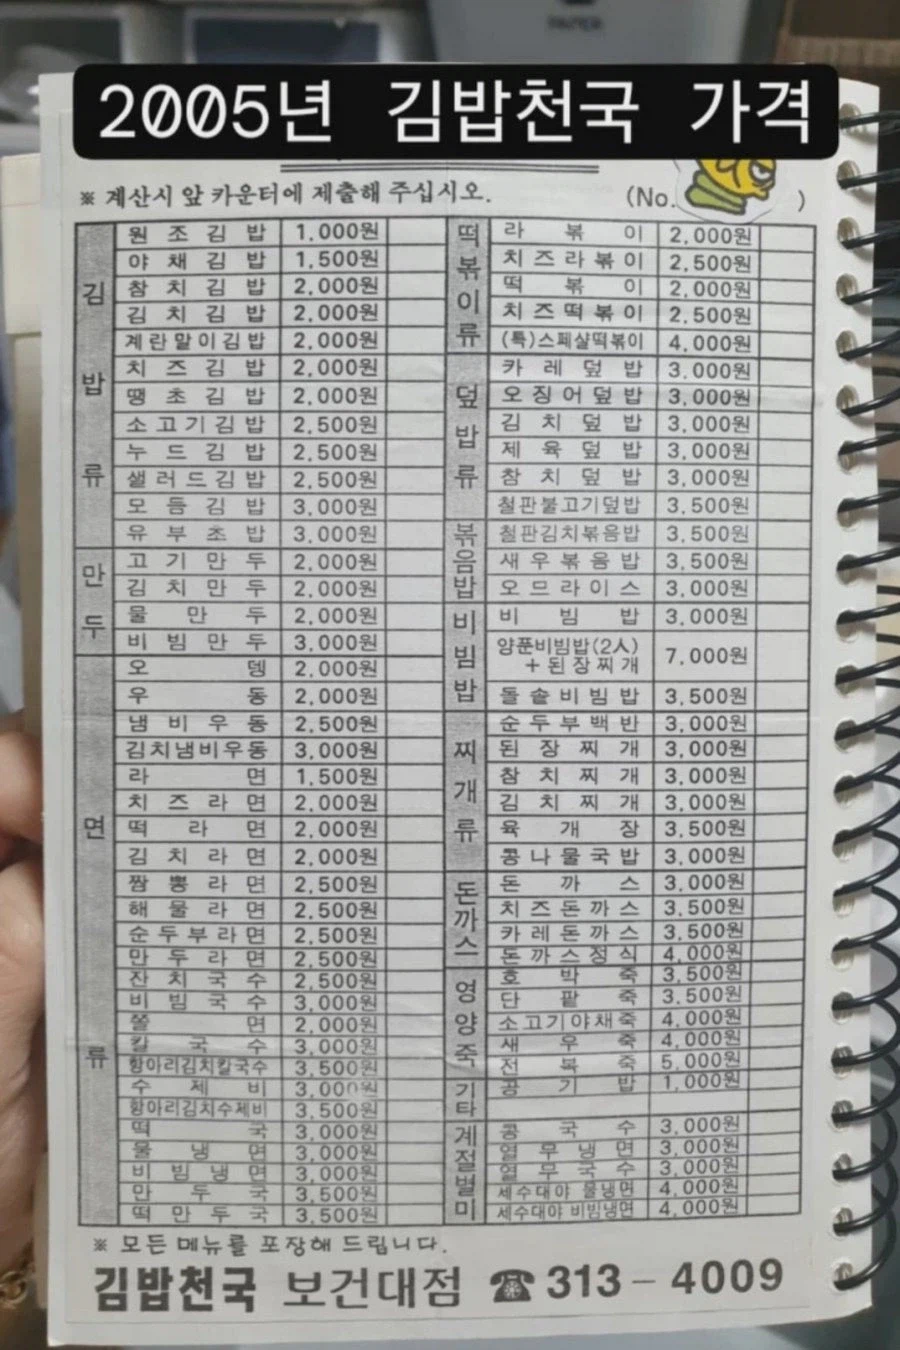 2005년 김밥천국 가격
※ 계산시 앞 카운터에 제출해 주십시오. (No. )
김밥류
원조김밥 1,000원
야채김밥 1,500원
참치김밥 2,000원
김치김밥 2,000원
계란말이김밥 2,000원
치즈김밥 2,000원
땡초김밥 2,000원
소고기김밥 2,500원
누드김밥 2,500원
샐러드김밥 2,500원
모듬김밥 3,000원
유부초밥 3,000원
만두
고기만두 2,000원
김치만두 2,000원
물만두 2,000원
비빔만두 3,000원
면류
오뎅 2,000원
우동 2,000원
냄비우동 2,500원
김치냄비우동 3,000원
라면 1,500원
치즈라면 2,000원
떡라면 2,000원
김치라면 2,000원
짬뽕라면 2,500원
해물라면 2,500원
순두부라면 2,500원
만두라면 2,500원
잔치국수 2,500원
비빔국수 3,000원
쫄면 2,000원
칼국수 3,000원
항아리김치칼국수 3,500원
수제비 3,000원
항아리김치수제비 3,500원
떡국 3,000원
물냉면 3,000원
비빔냉면 3,000원
만두국 3,500원
떡만두국 3,500원
떡볶이류
라볶이 2,000원
치즈라볶이 2,500원
떡볶이 2,000원
치즈떡볶이 2,500원
(특)스페샬떡볶이 4,000원
덮밥류
카레덮밥 3,000원
오징어덮밥 3,000원
김치덮밥 3,000원
제육덮밥 3,000원
참치덮밥 3,000원
철판불고기덮밥 3,500원
볶음밥
철판김치볶음밥 3,500원
새우볶음밥 3,500원
오므라이스 3,000원
비빔밥
비빔밥 3,000원
양푼비빔밥(2人)
+된장찌개 7,000원
돌솥비빔밥 3,500원
찌개류
순두부백반 3,000원
된장찌개 3,000원
참치찌개 3,000원
김치찌개 3,000원
육개장 3,500원
콩나물국밥 3,000원
돈까스
돈까스 3,000원
치즈돈까스 3,500원
카레돈까스 3,500원
돈까스정식 4,000원
영양죽
호박죽 3,500원
단팥죽 3,500원
소고기야채죽 4,000원
새우죽 4,000원
전복죽 5,000원
기타
공기밥 1,000원
계절별미
콩국수 3,000원
열무냉면 3,000원
열무국수 3,000원
세수대야 물냉면 4,000원
세수대야 비빔냉면 4,000원
※ 모든 메뉴를 포장해 드립니다.
김밥천국 보건대점 ☎313-4009